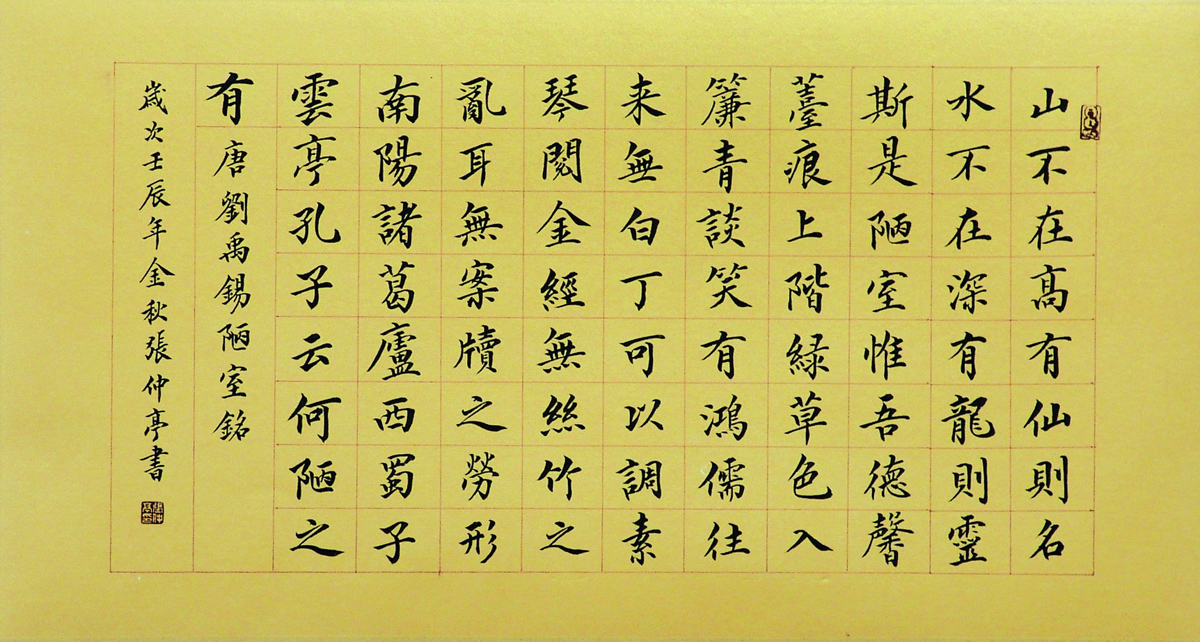 山不在高有仙則名
水不在深有龍則靈
斯是陋室惟吾德馨
薹痕上階緑草色入
簾青談笑有鴻儒往
来無白丁可以調素
琴閱金經無絲竹之
亂耳無案牘之勞形
南陽諸葛廬西蜀子
雲亭孔子云何陋之
有唐劉禹錫陋室銘
歲次壬辰年金秋張仲亭書